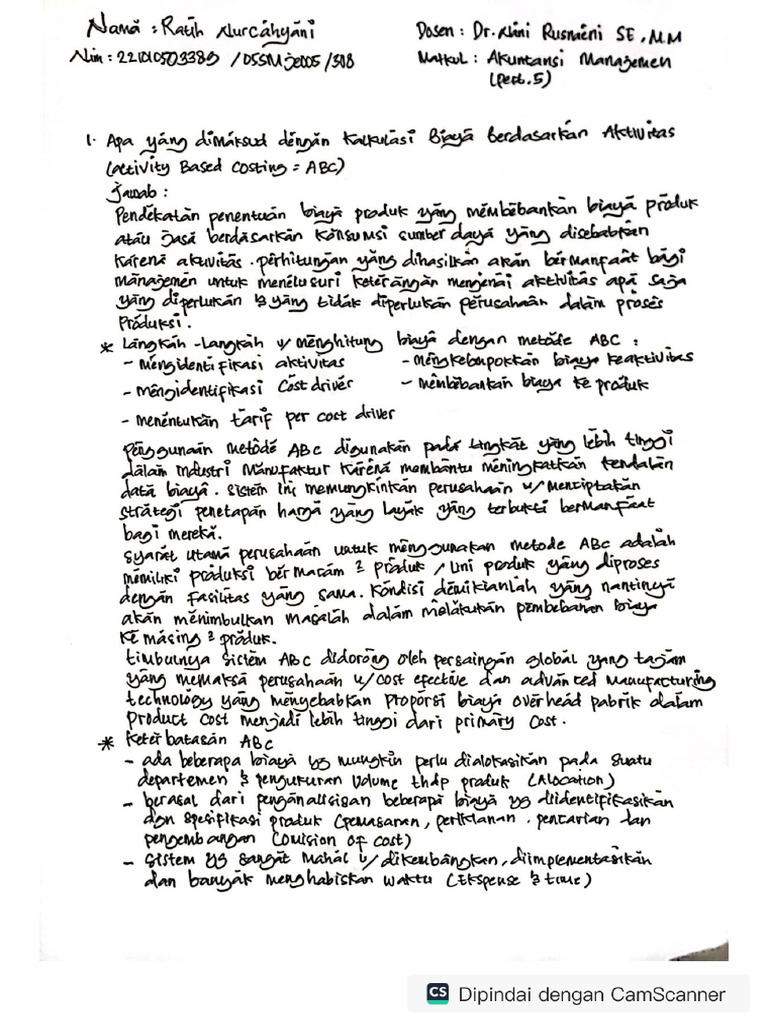 Nama : Ratih Nurcahyani
Dosen : Dr. Nani Rusmeni SE, M.M
Nim : 221010503383 / 05SMJE005 / 308
Matkul : Akuntansi Manajemen
(pert. 5)
1. Apa yang dimaksud dengan Kalkulasi Biaya Berdasarkan Aktivitas
(Activity Based Costing = ABC)
Jawab :
Pendekatan penentuan biaya produk yang membebankan biaya produk
atau jasa berdasarkan konsumsi sumber daya yang disebabkan
karena akuvitas. perhitungan yang dihasilkan akan bermanfaat bagi
manajemen untuk menelusuri keterangan mengenai aktivitas apa saja
yang diperlukan & yang tidak diperlukan perusahaan dalam proses
Produksi.
* Langkah-Langkah u/ menghitung biaya dengan metode ABC :
- mengidentifikasi aktivitas
- mengkelompokkan biaya keaktivitas
- mengidentifikasi Cost driver
- membebankan biaya ke produk
- menentukan tarif per cost driver
Penggunaan metode ABC digunakan pada tingkat yang lebih tinggi
dalam Industri Manufaktur karena membantu meningkatkan kendalan
data biaya. Sistem ini memungkinkan perusahaan u/ menciptakan
strategi penetapan harga yang layak yang terbukti bermanfaat
bagi mereka.
Syarat utama perusahaan untuk menggunakan metode ABC adalah
memiliki produksi bermacam 2 produk / Lini produk yang diproses
dengan fasilitas yang sama. Kondisi demikianlah yang nantinya
akan menimbulkan masalah dalam melakukan pembebanan biaya
ke masing 2 produk.
timbulnya sistem ABC didorong oleh persaingan global yang tajam
yang memaksa perusahaan u/ cost efective dan advanced Manufacturing
technology yang menyebabkan proporsi biaya overhead pabrik dalam
product cost menjadi lebih tinggi dari primary cost.
* Keterbatasan ABC
- ada beberapa biaya yg mungkin perlu dialokasikan pada suatu
departemen & pengukuran volume thdp produk (Alocation)
- berasal dari penganalisisan beberapa biaya yg diidentifikasikan
dgn spesifikasi produk (pemasaran, periklanan, pencarian dan
pengembangan (Omision of cost)
- Sistem yg sangat Mahal u/ dikembangkan, diimplementasikan
dan banyak menghabiskan waktu (Ekspense & time)
CS Dipindai dengan CamScanner